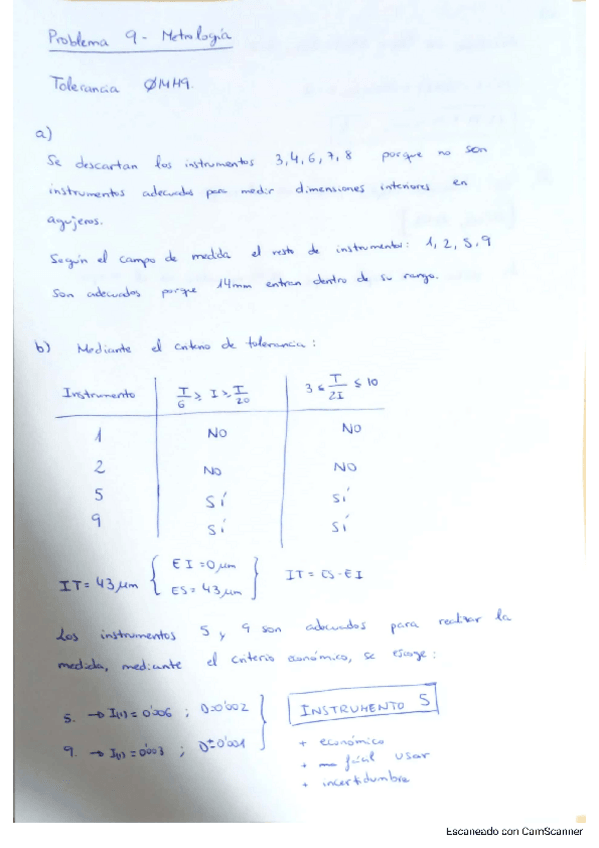 Problema 9 - Metrología
Tolerancia Ø14H9.
a)
Se descartan los instrumentos 3,4,6,7,8 porque no son
instrumentos adecuados para medir dimensiones interiores en
agujeros.
Según el campo de medida el resto de instrumentos: 1, 2, 5, 9
Son adecuados porque 14mm entran dentro de su rango.
b) Mediante el criterio de tolerancia:
Instrumento T/6 ≥ I ≥ T/20 3 ≤ T/2I ≤ 10
1 NO NO
2 NO NO
5 SÍ SÍ
9 SÍ SÍ
IT = 43 μm { EI = 0 μm
ES = 43 μm } IT = ES - EI
Los instrumentos 5 y 9 son adecuados para realizar la
medida, mediante el criterio económico, se escoge:
5. → I(1) = 0'006 ; D=0'002
9. → I(1) = 0'003 ; D=0'001
INSTRUMENTO 5
+ económico
+ fácil usar
+ incertidumbre
Escaneado con CamScanner